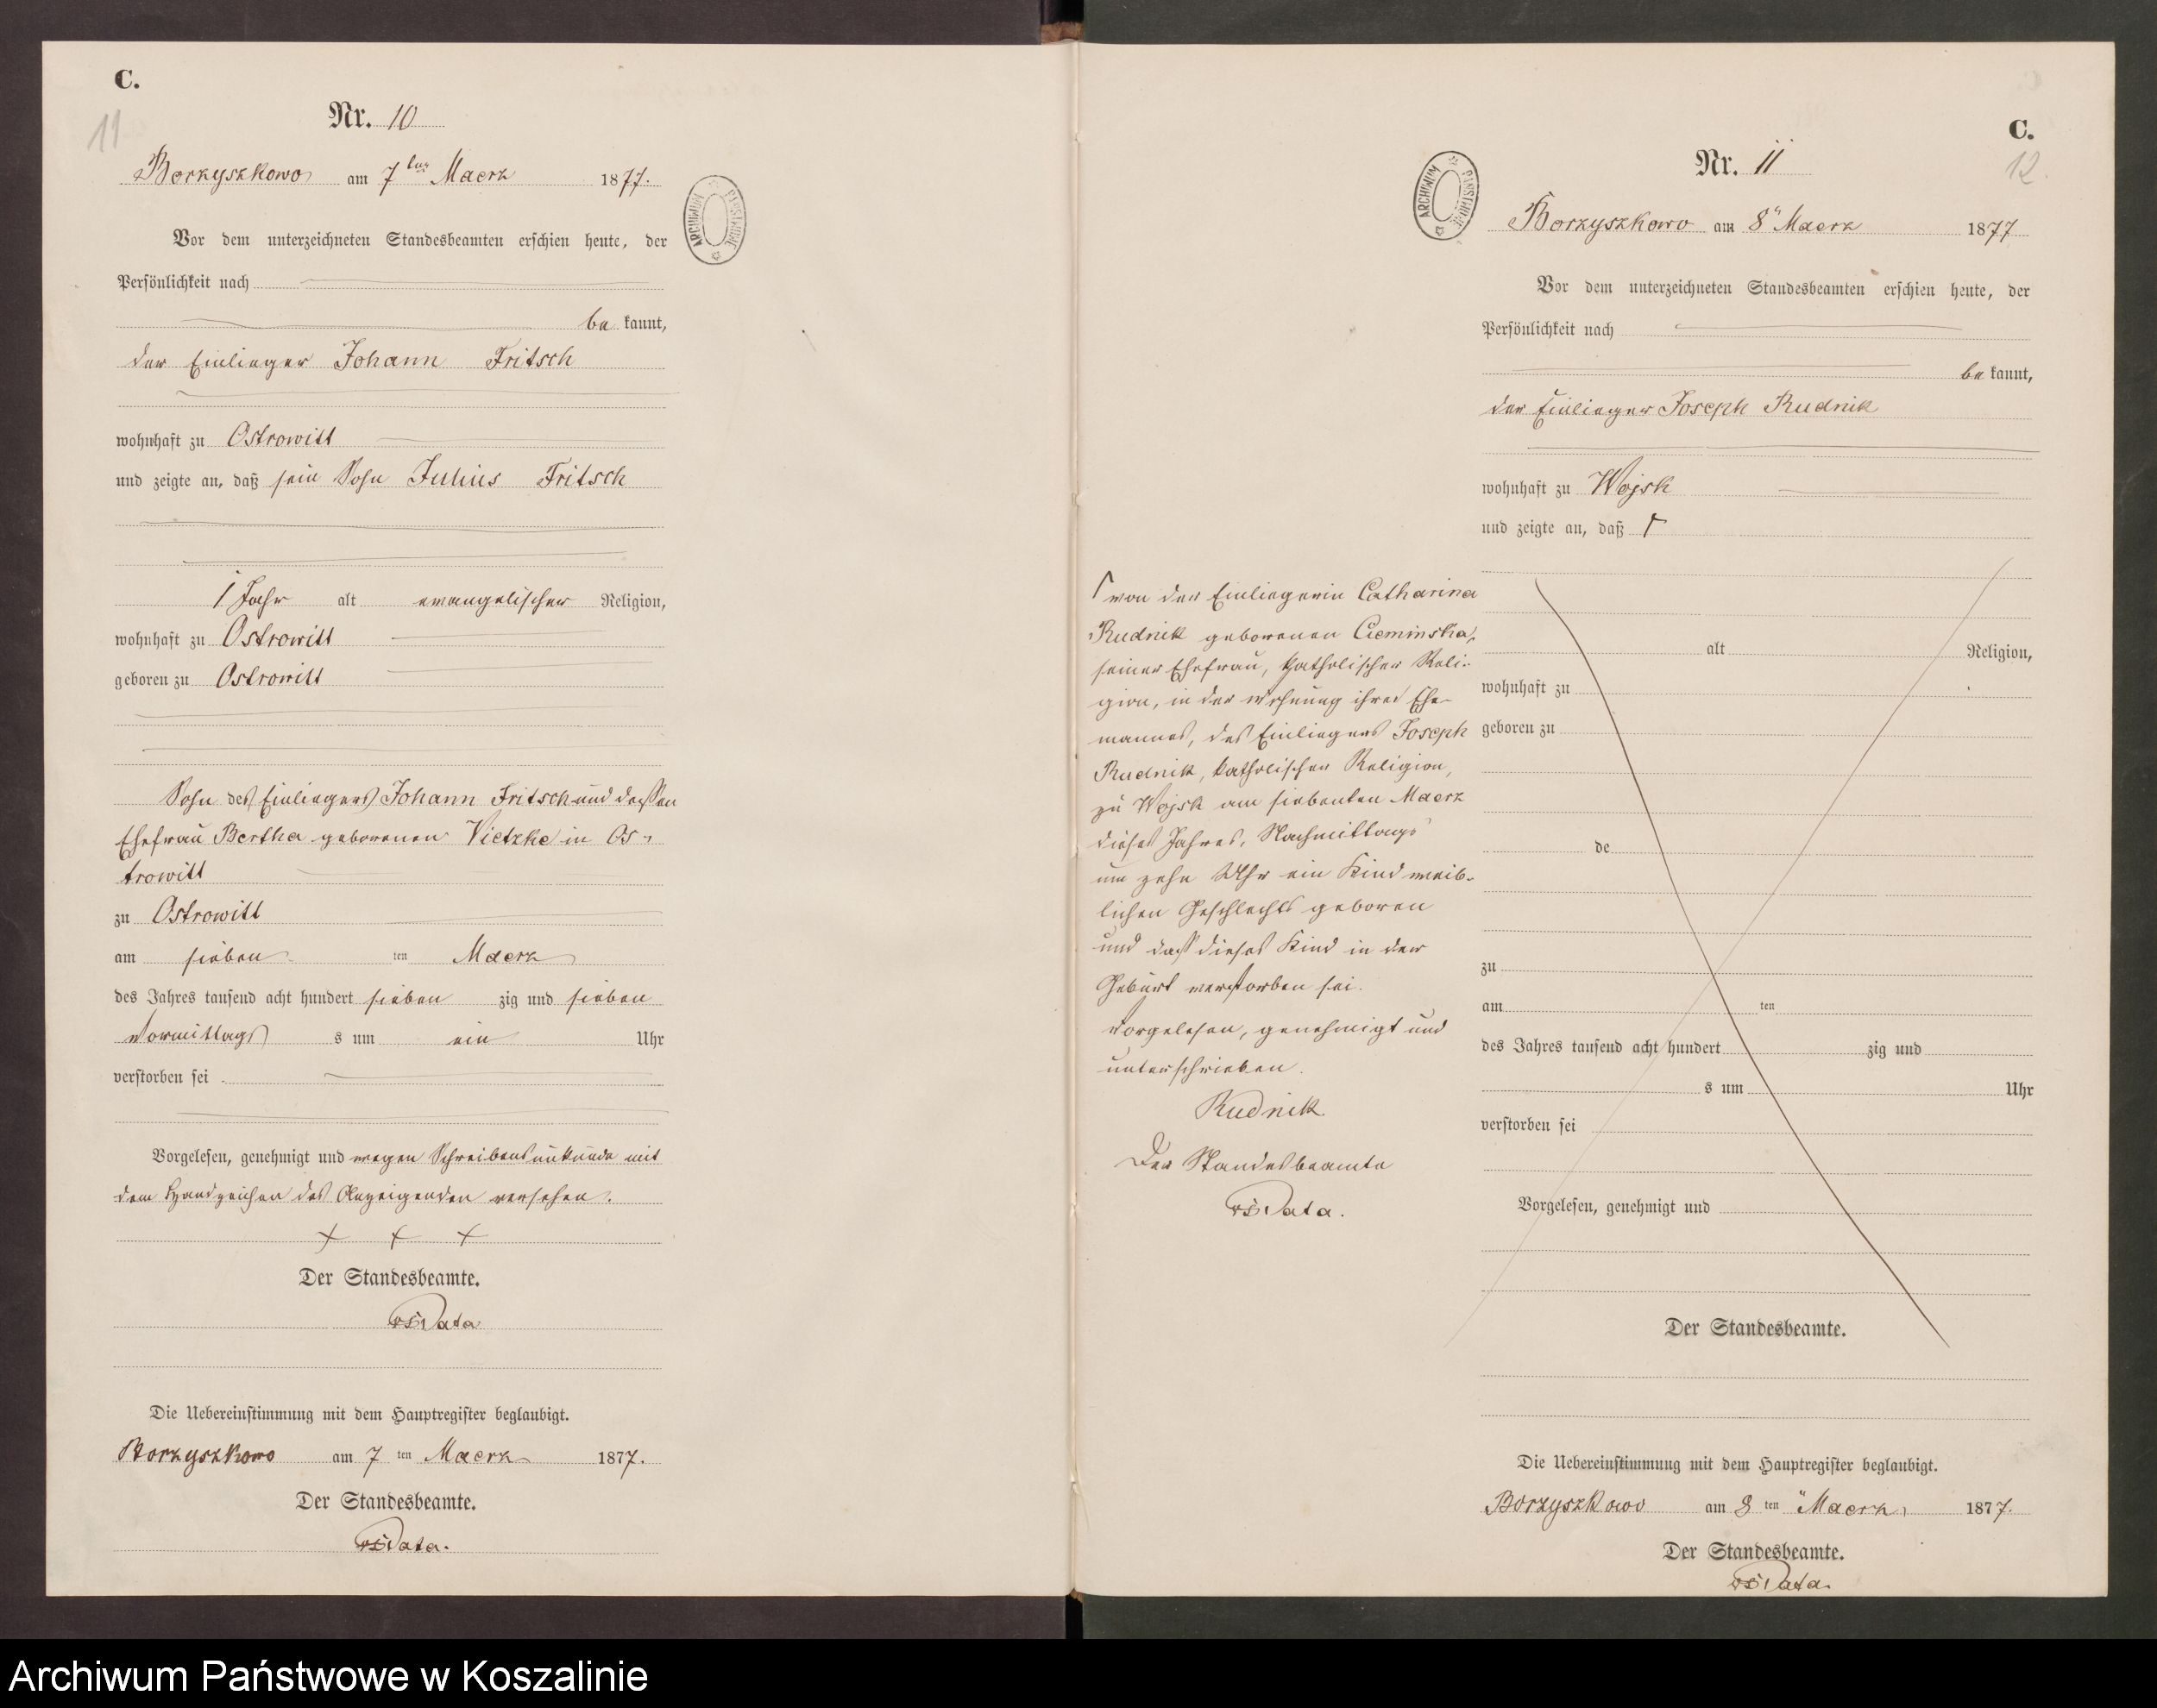 C.
11
Nr. 10
Borzyszkowo am 7ten Maerz 1877.
Vor dem unterzeichneten Standesbeamten erschien heute, der
Persönlichkeit nach
be kannt,
der Einlieger Johann Fritsch
wohnhaft zu Ostrowitt
und zeigte an, daß sein Sohn Julius Fritsch
1 Jahr alt evangelischer Religion,
wohnhaft zu Ostrowitt
geboren zu Ostrowitt
Sohn des Einliegers Johann Fritsch und dessen
Ehefrau Bertha geborenen Vietzke in Os-
trowitt
zu Ostrowitt
am sieben ten Maerz
des Jahres tausend acht hundert sieben zig und sieben
Vormittags s um ein Uhr
verstorben sei
Vorgelesen, genehmigt und wegen Schreibensunkunde mit
dem Handzeichen des Anzeigenden versehen.
+ + +
Der Standesbeamte.
Data
Die Uebereinstimmung mit dem Hauptregister beglaubigt.
Borzyszkowo am 7 ten Maerz 1877.
Der Standesbeamte.
Data.
ARCHIWUM PAŃSTWOWE
C.
12.
Nr. 11
Borzyszkowo am 8" Maerz 1877
Vor dem unterzeichneten Standesbeamten erschien heute, der
Persönlichkeit nach
be kannt,
der Einlieger Joseph Rudnik
wohnhaft zu Wojsk
und zeigte an, daß Γ
Γ von der Einliegerin Catharina
Rudnik geborenen Cieminska,
seiner Ehefrau, katholischer Reli-
gion, in der Wohnung ihres Ehe-
mannes, des Einliegers Joseph
Rudnik, katholischer Religion,
zu Wojsk am siebenten Maerz
dieses Jahres, Nachmittags
um zehn Uhr ein Kind weib-
lichen Geschlechts geboren
und daß dieses Kind in der
Geburt verstorben sei.
Vorgelesen, genehmigt und
unterschrieben.
Rudnik.
Der Standesbeamte
Data.
alt Religion,
wohnhaft zu
geboren zu
de
zu
am ten
des Jahres tausend acht hundert zig und
s um Uhr
verstorben sei
Vorgelesen, genehmigt und
Der Standesbeamte.
Die Uebereinstimmung mit dem Hauptregister beglaubigt.
Borzyszkowo am 8 ten Maerz 1877.
Der Standesbeamte.
Data.
ARCHIWUM PAŃSTWOWE
Archiwum Państwowe w Koszalinie